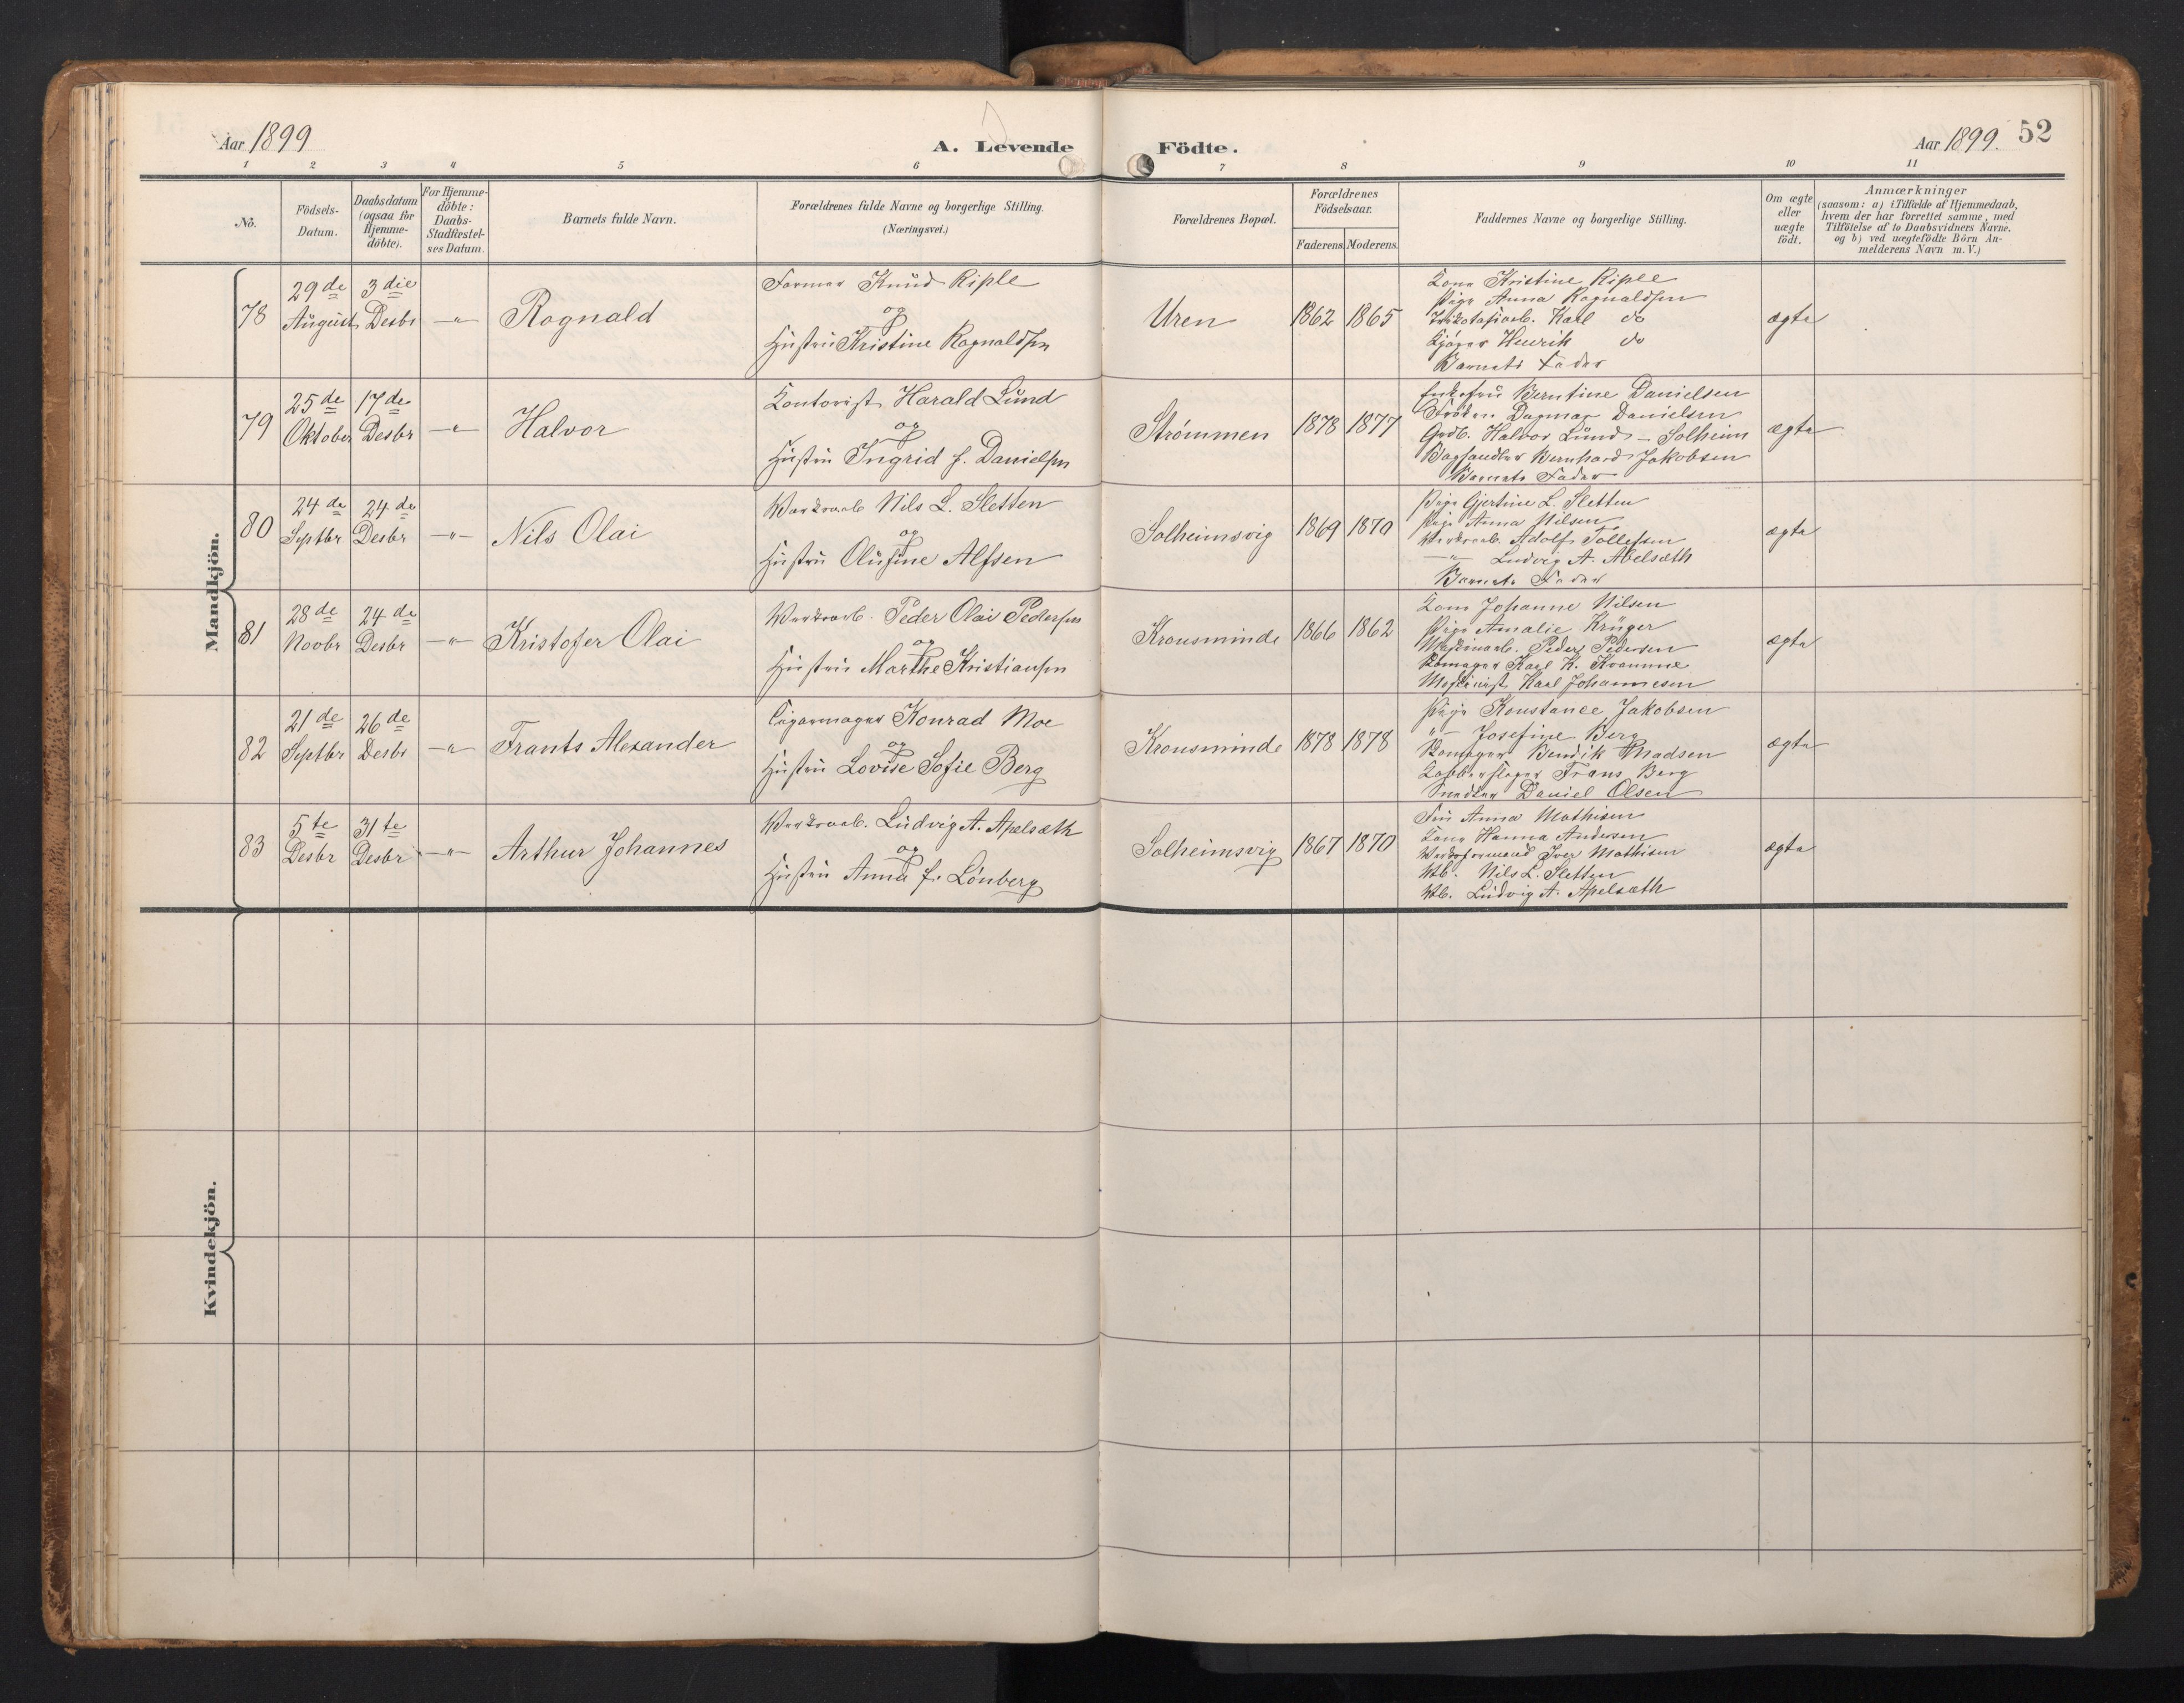 Aar 1899
A. Levende Födte.
Aar 1899. 52
1 2 3 4 5 6 7 8 9 10 11
No.
Födsels-Datum.
Daabsdatum (ogsaa for Hjemme-döbte).
For Hjemme-döbte: Daabs-Stadfæstel-ses Datum.
Barnets fulde Navn.
Forældrenes fulde Navne og borgerlige Stilling.
(Næringsvei.)
Forældrenes Bopæl.
Forældrenes Födselsaar.
Faderens. Moderens.
Faddernes Navne og borgerlige Stilling.
Om ægte eller uægte födt.
Anmærkninger
(saasom: a) i Tilfælde af Hjemmedaab,
hvem der har forrettet samme, med
Tilföielse af to Daabsvidners Navne.
og b) ved uægtefödte Börn An-
melderens Navn m. V.)
Mandkjön.
78
29de August
3die Desbr
—"—
Rognald
Former Knud Riple
og
Hustru Kristine Rognaldsen
Uren
1862 1865
Kone Kristine Riple
Pige Anna Rognaldsen
Trikotasiarb. Karl do
Henrik do
Barnets Fader
ægte
79
25de Oktober
17de Desbr
—"—
Halvor
Kontorist Harald Lund
og
Hustru Ingrid f. Danielsen
Strømmen
1878 1877
Enkefru Berntine Danielsen
Frøken Dagmar Danielsen
Grdb. Halvor Lund – Solheim
Bernhard Jakobsen
Barnets Fader
ægte
80
24de Septbr
24de Desbr
—"—
Nils Olai
Værksarb Nils L. Sletten
og
Hustru Olufine Alfsen
Solheimsvig
1869 1870
Pige Gjertine L. Sletten
Pige Anna Nilsen
Værksarb. Adolf Tollefsen
—"— Ludvig A. Abelsæth
Barnets Fader
ægte
81
28de Novbr
24de Desbr
—"—
Kristofer Olai
Værksarb. Peder Olai Pedersen
og
Hustru Marthe Kristiansen
Kronsminde
1866 1862
Kone Johanne Nilsen
Pige Amalie Krüger
Peder Pedersen
Karl K. Kvamme
Maskinist Karl Johannesen
ægte
82
21de Septbr
26de Desbr
—"—
Frants Alexander
Cigarmager Konrad Moe
og
Hustru Lovise Sofie Berg
Kronsminde
1878 1878
Pige Konstance Jakobsen
"— Josefine Berg
Bendik Madsen
Kobberslager Frans Berg
Snedker Daniel Olsen
ægte
83
5te Desbr
31te Desbr
—"—
Arthur Johannes
Værksarb. Ludvig A. Apelsæth
og
Hustru Anna f. Lönberg
Solheimsvig
1867 1870
Fru Anna Mathisen
Kone Hanna Andersen
Værksformand Iver Mathisen
Vkb. Nils L. Sletten
Vkb. Ludvig A. Apelsæth
ægte
Kvindekjön.